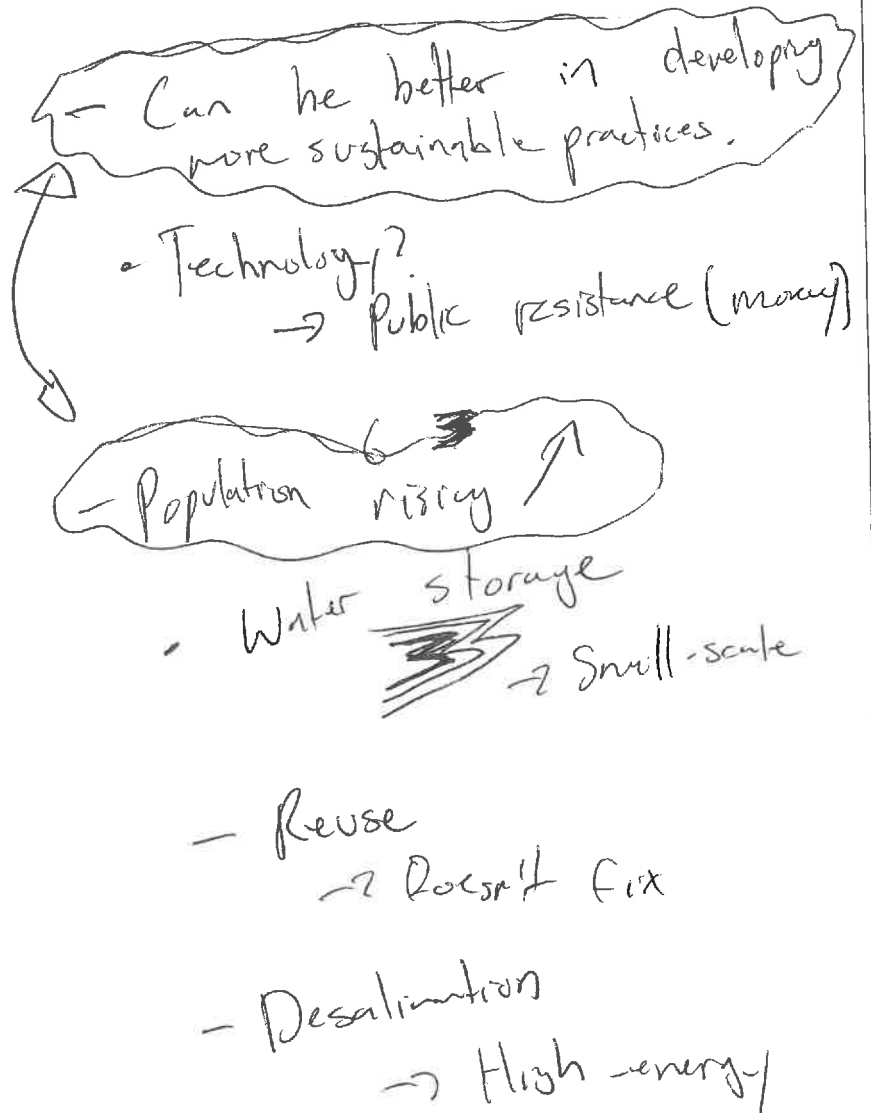 - Can be better in developing
more sustainable practices.
• Technology?
→ Public resistance (money)
- Population rising ↗
• Water storage
→ Small-scale
- Reuse
→ Doesn't fix
- Desalination
→ High-energy